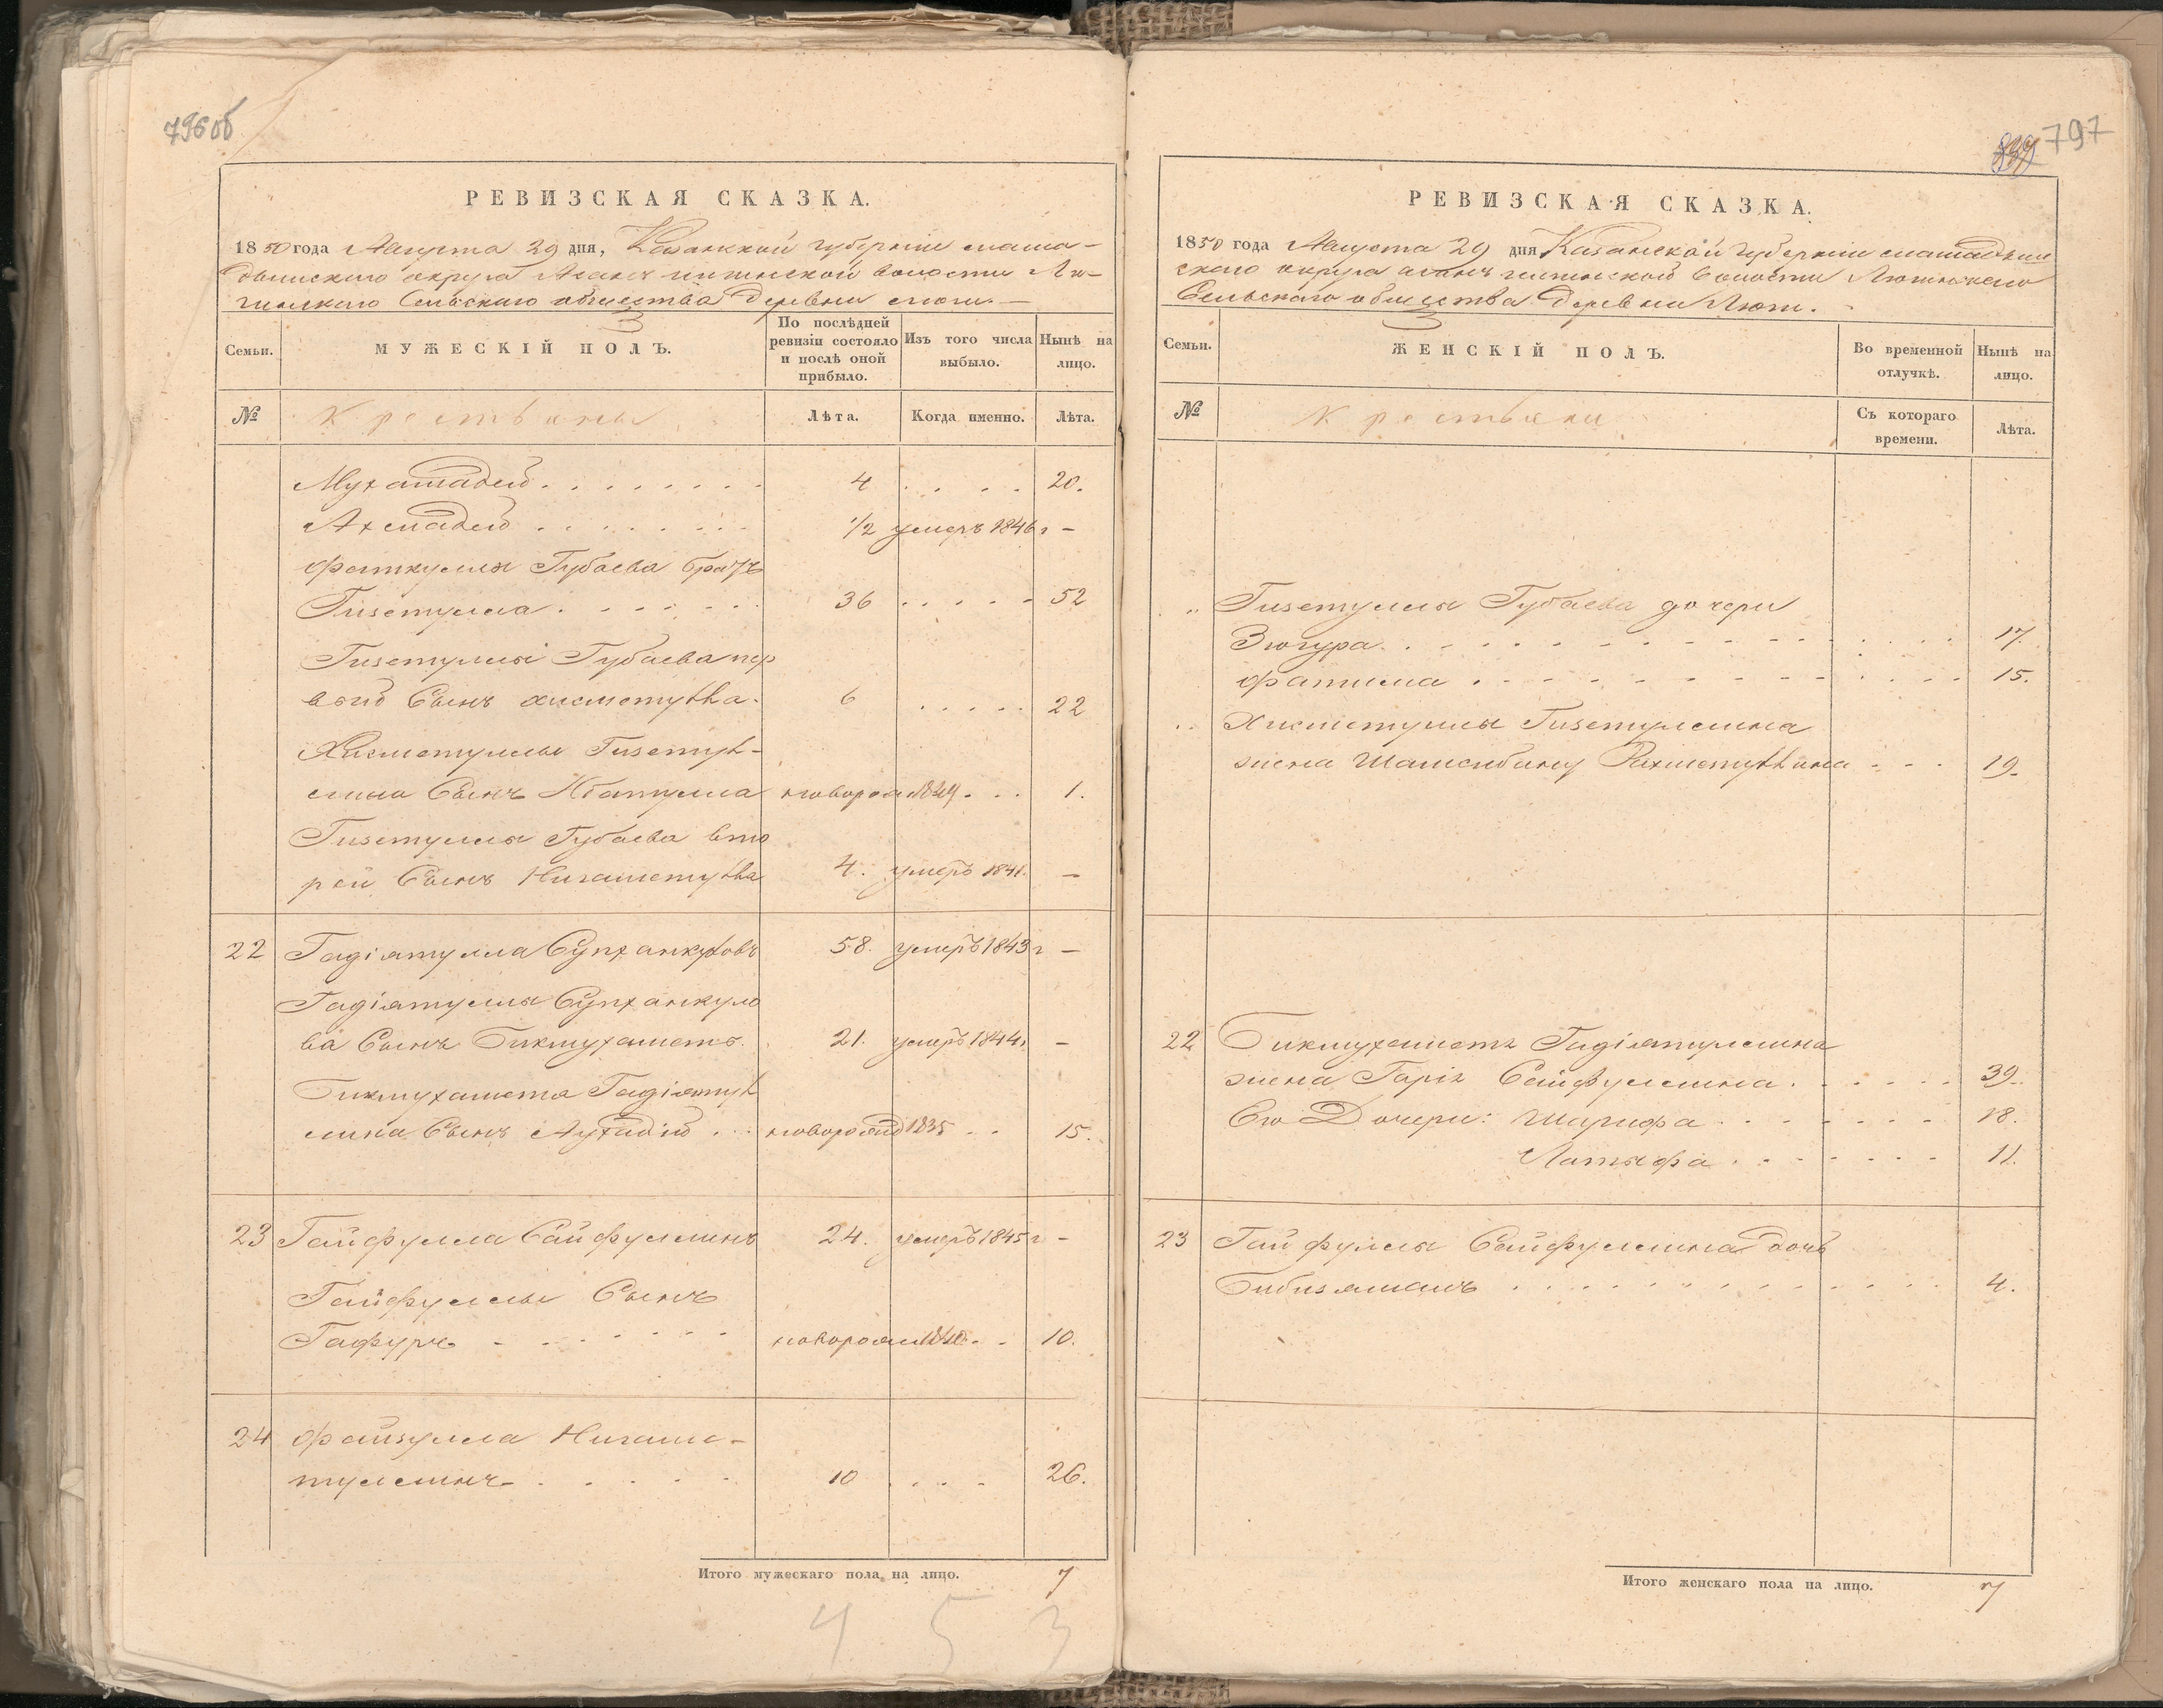 796об
РЕВИЗСКАЯ СКАЗКА.
1850 года Августа 29 дня, Казанской губернии мама-
дышского округа волости Лю-
Сельского общества деревни
Семьи.
МУЖЕСКІЙ ПОЛЪ.
По послѣдней ревизіи состояло и послѣ оной прибыло.
Изъ того числа выбыло.
Нынѣ на лицо.
№
Крестьяны
Лѣта.
Когда именно.
Лѣта.
Мухамадей . . . . . . . . 4 . . . . 20.
Ахмадей . . . . . . . 1/2 умеръ 1846 г –
Фаткулла Губаева братъ
Гизетулла . . . . . . . 36 . . . . . 52
Гизетуллы Губаева пер
вой Сынъ Хисметулла. 6 . . . . . 22
Хисметуллы Гизетул-
лина Сынъ новорож 1849 . . . 1.
Гизетуллы Губаева вто
рой Сынъ Нигаметулла 4. умеръ 1841. –
22 Гадіятулла Супханкуловъ 58. умеръ 1843 г –
Гадіятуллы Супханкуло
ва Сынъ Бикмухаметъ. 21. умеръ 1844 г –
Бикмухамета Гадіятул
лина Сынъ . . . новорожд 1835 . . 15.
23 Гайфулла Сайфуллинъ 24. умеръ 1845 г –
Гайфуллы Сынъ
Гафуръ - - - - - - - новорож 1840 . . 10.
24 Файзулла Нигаме-
туллинъ . . . . . 10 . . . . 26.
Итого мужескаго пола на лицо. 7
4 5 3
839 797
РЕВИЗСКАЯ СКАЗКА.
1850 года Августа 29 дня Казанской губернии мамадыш
ского округа волости Люгинского
Сельского общества деревни Люги.
Семьи.
ЖЕНСКІЙ ПОЛЪ.
Во временной отлучкѣ.
Нынѣ на лицо.
№
Крестьяни
Съ котораго времени.
Лѣта.
„ Гизетуллы Губаева дочери
Зюгура . . . . . . . . . . . . . . 17.
Фатима . . . . . . . . . . . . . 15.
„ Хисметуллы Гизетуллина
жена Шамсибану Рахметуллина . . . 19.
22 Бикмухаметъ Гадіятуллина
жена Сайфуллина . . . . . . 39.
Его Дочери: Шарифа . . . . . . . 18.
Латыфа . . . . . . . 11.
23 Гайфуллы Сайфуллина дочь
Бибизямалъ . . . . . . . . . . . . . 4.
Итого женскаго пола на лицо. 7